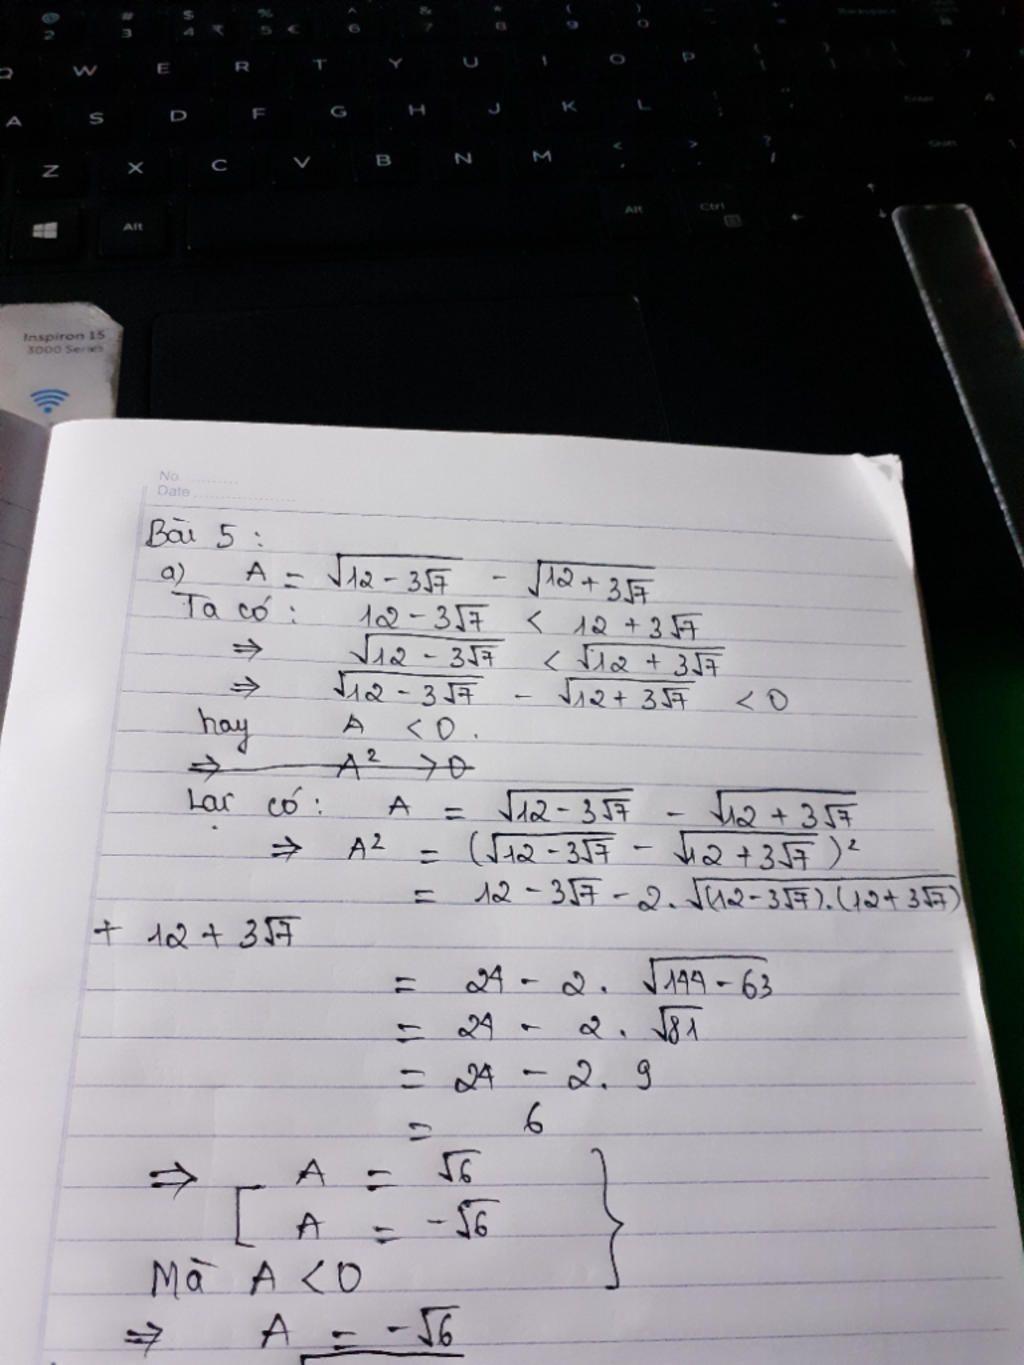 @ # $ % ^ & * ( )
2 3 4 ₹ 5 € 6 7 8 9 0
Q W E R T Y U I O P
A S D F G H J K L
Z X C V B N M < , > . ? /
Alt Alt Ctrl
Inspiron 15
3000 Series
No
Date
Bài 5 :
a) A = √(12 - 3√7) - √(12 + 3√7)
Ta có : 12 - 3√7 < 12 + 3√7
⇒ √(12 - 3√7) < √(12 + 3√7)
⇒ √(12 - 3√7) - √(12 + 3√7) < 0
hay A < 0 .
⇒ A² > 0
Lại có : A = √(12 - 3√7) - √(12 + 3√7)
⇒ A² = (√(12 - 3√7) - √(12 + 3√7))²
= 12 - 3√7 - 2. √((12 - 3√7).(12 + 3√7))
+ 12 + 3√7
= 24 - 2 . √(144 - 63)
= 24 - 2 . √81
= 24 - 2. 9
= 6
⇒ [ A = √6 }
A = -√6
Mà A < 0
⇒ A = -√6